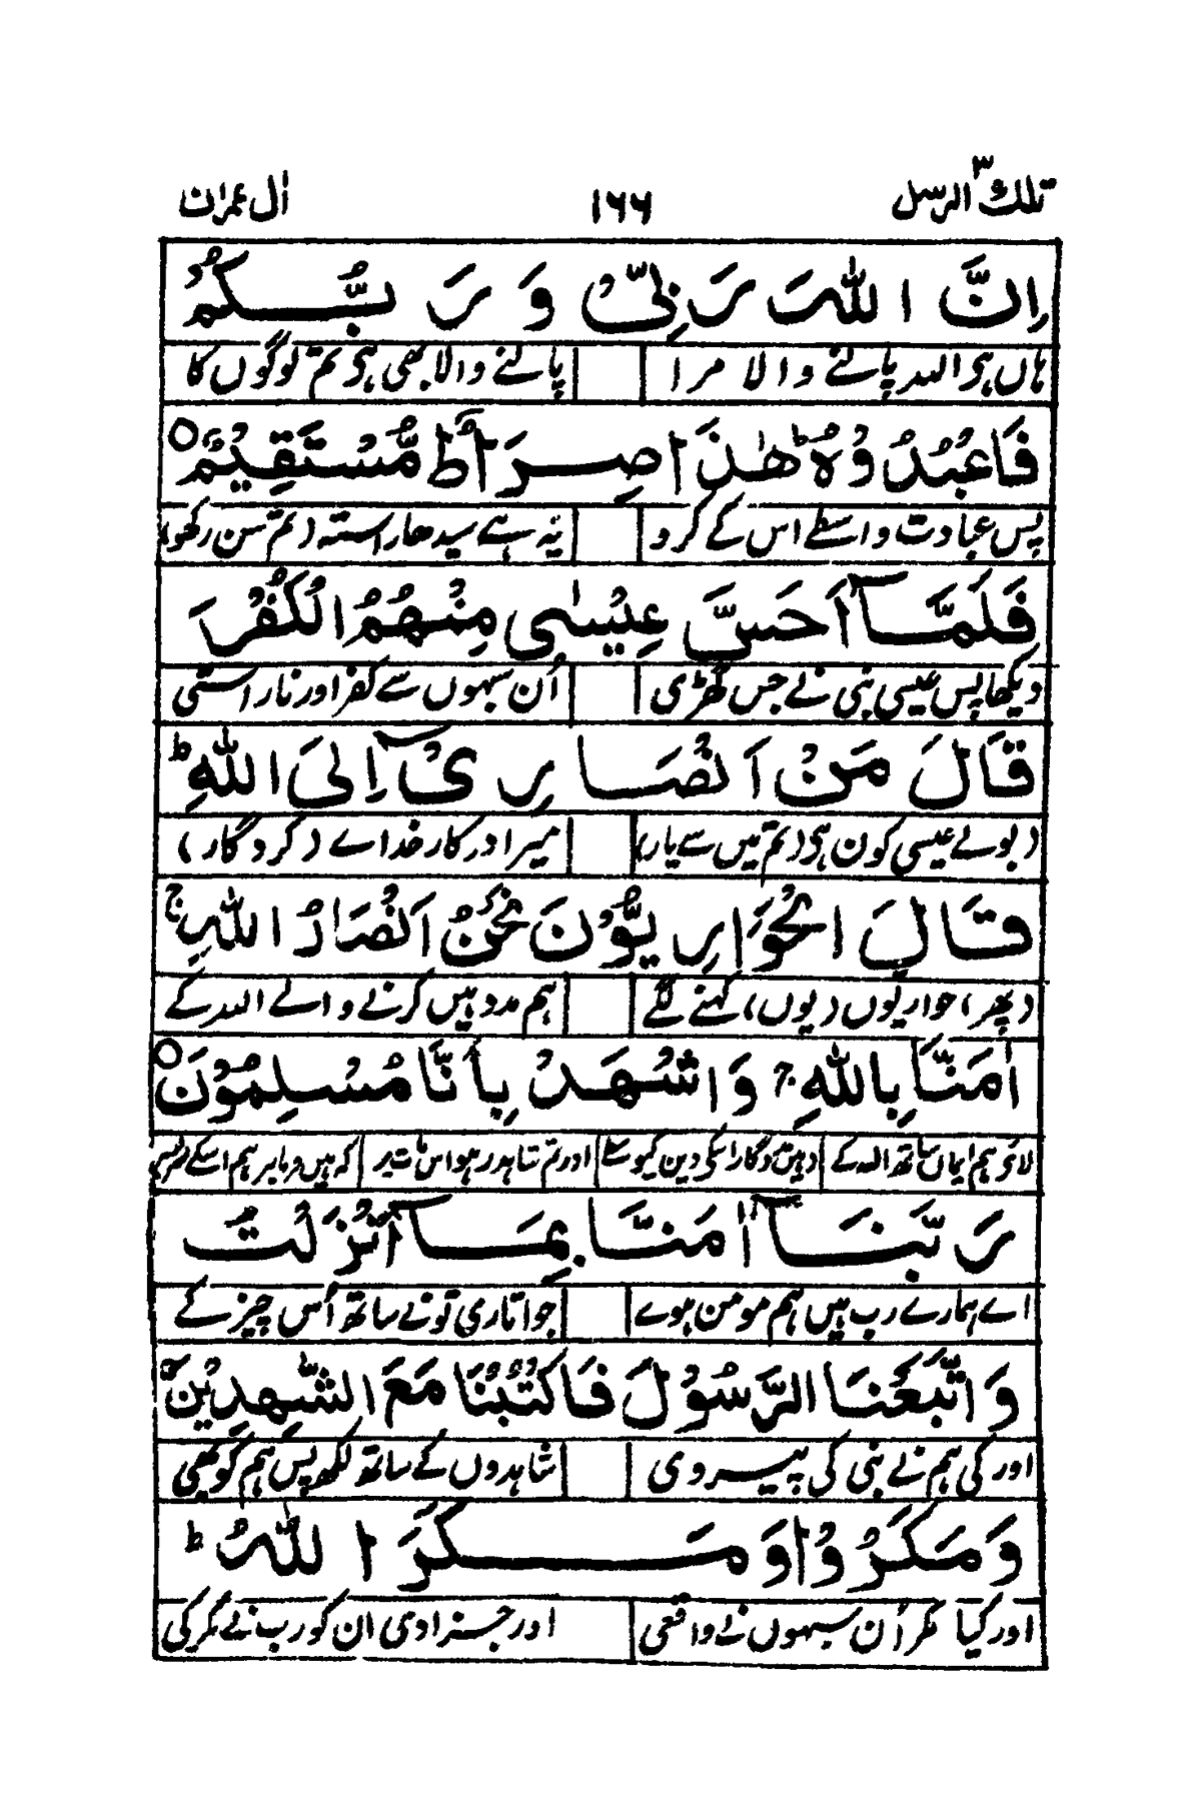 تلك الرسل ٣ ١٦٦ اٰل عمران
اِنَّ اللّٰهَ رَبِّيْ وَ رَبُّكُمْ
ہاں ہی اللہ پالنے والا مرا پالنے والا بھی ہی تم لوگوں کا
فَاعْبُدُوْهُ ؕ هٰذَا صِرَاطٌ مُّسْتَقِيْمٌ ○
پس عبادت واسطے اس کے کرو یہ ہے سیدھا راستہ (تم سن رکھو)
فَلَمَّاۤ اَحَسَّ عِيْسٰى مِنْهُمُ الْكُفْرَ
دیکھا پس عیسی نبی نے جس گھڑی اُن سبہوں سے کفر اور ناراستی
قَالَ مَنْ اَنْصَارِيْۤ اِلَى اللّٰهِ ؕ
(بولے عیسی کون ہی (تم میں سے یار) میرا درکار خداے (کردگار)
قَالَ الْحَوَارِيُّوْنَ نَحْنُ اَنْصَارُ اللّٰهِ ۚ
(پھر) حواریوں (یوں) کہنے لگے ہم مدد ہیں کرنے والے اللہ کے
اٰمَنَّا بِاللّٰهِ ۚ وَاشْهَدْ بِاَنَّا مُسْلِمُوْنَ ○
لائے ہم ایماں ساتھ اللہ کے اور تم شاہد رہو اس بات پر
رَبَّنَاۤ اٰمَنَّا بِمَاۤ اَنْزَلْتَ
اے ہمارے رب ہیں ہم مومن ہوے جو اتاری تو نے ساتھ اُس چیز کے
وَاتَّبَعْنَا الرَّسُوْلَ فَاكْتُبْنَا مَعَ الشّٰهِدِيْنَ
اور کی ہم نے نبی کی پیروی شاہدوں کے ساتھ لکھ پس ہم کو بھی
وَمَكَرُوْا وَمَكَرَ اللّٰهُ ؕ
اور کیا مکر اُن سبہوں نے واقعی اور جزا دی ان کو رب نے مکر کی